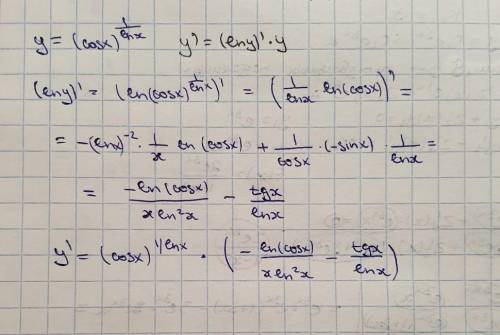 y = (cosx)^(1/lnx)   y' = (lny)'·y
(lny)' = (ln(cosx)^(1/lnx))' = (1/lnx · ln(cosx))' =
= -(lnx)^(-2) · 1/x ln(cosx) + 1/cosx · (-sinx) · 1/lnx =
= -ln(cosx)/(x ln²x) - tgx/lnx
y' = (cosx)^(1/lnx) · (- ln(cosx)/(x ln²x) - tgx/lnx)